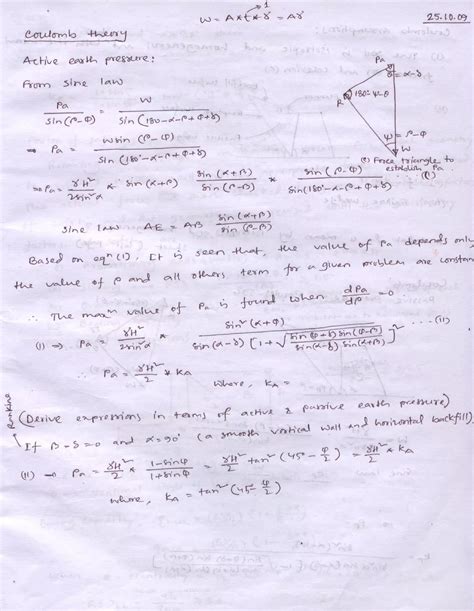 W = A x t x γ = Aγ
1
25.10.09
Coulomb theory
Active earth pressure:
From sine law
Pa / sin(ρ-φ) = W / sin(180-α-ρ+φ+δ)
⇒ Pa = W sin(ρ-φ) / sin(180-α-ρ+φ+δ)
⇒ Pa = γH² / 2sin²α * sin(α+ρ) * sin(α+β) / sin(ρ-β) * sin(ρ-φ) / sin(180°-α-ρ+φ+δ) (1)
Pa
θ = α-δ
R
180-ψ-θ
ψ = ρ-φ
W
Force triangle to
establish Pa
sine law AE = AB sin(α+β) / sin(ρ-β)
Based on eqn (1), It is seen that, the value of Pa depends only
the value of ρ and all others term for a given problem are constan
∴ The maxm value of Pa is found when dPa/dρ = 0
(1) ⇒ Pa = γH² / 2sin²α * sin²(α+φ) / sin(α-δ) [1+ √(sin(φ+δ) sin(φ-β) / sin(α-δ) sin(α+β))]² ---(11)
∴ Pa = γH²/2 * KA
where, KA =
Rankine
(Derive expressions in terms of active & passive earth pressure)
If β=δ=0 and α=90° (a smooth vertical wall and horizontal backfill),
(11) → Pa = γH²/2 * 1-sinφ / 1+sinφ = γH²/2 tan²(45°-φ/2) = γH²/2 * KA
where, KA = tan²(45-φ/2)